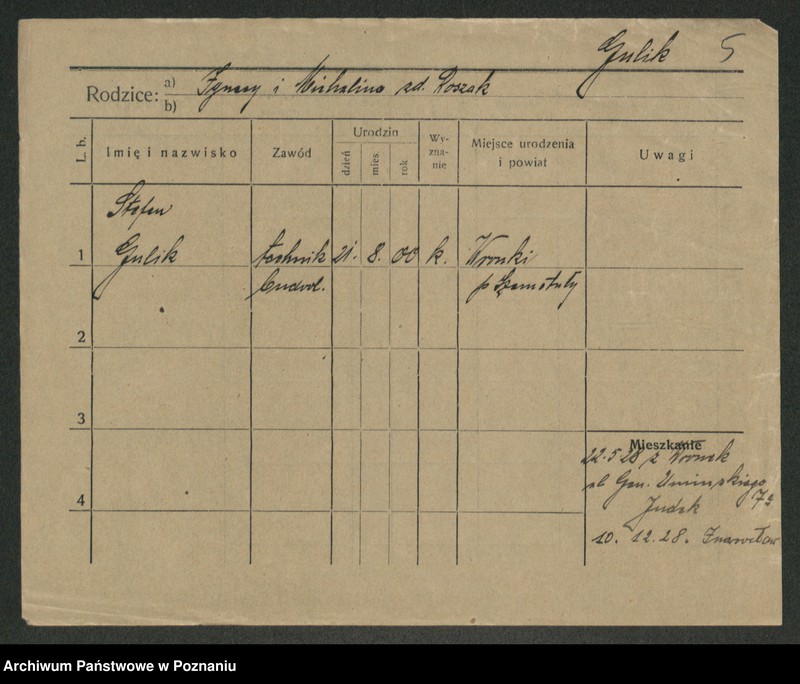 Gulik 5
Rodzice: a) b) Ignacy i Michalina zd. Roszak
L. b. Imię i nazwisko Zawód Urodzin dzień mies. rok Wyznanie Miejsce urodzenia i powiat Uwagi
Stefan
1 Gulik technik 21. 8. 00 k. Wronki
budowl. p Szamotuły
2
3
Mieszkanie
22.5.28 z Wronek
ul Gen. Umińskiego 7a
4
10. 12. 28. Inowrocław
Archiwum Państwowe w Poznaniu